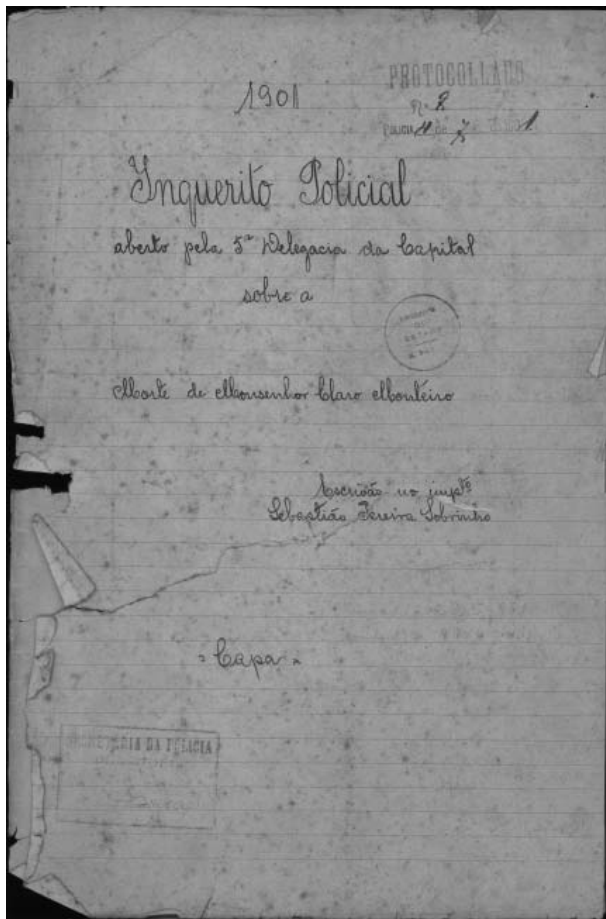 1901
PROTOCOLLADO
N. 8
POLICIA
Inquerito Policial
aberto pela 5ª Delegacia da Capital
sobre a
Morte de Monsenhor Claro Monteiro
Escrivão no impto
Sebastião Pereira Sobrinho
= Capa =
SECRETARIA DA POLICIA